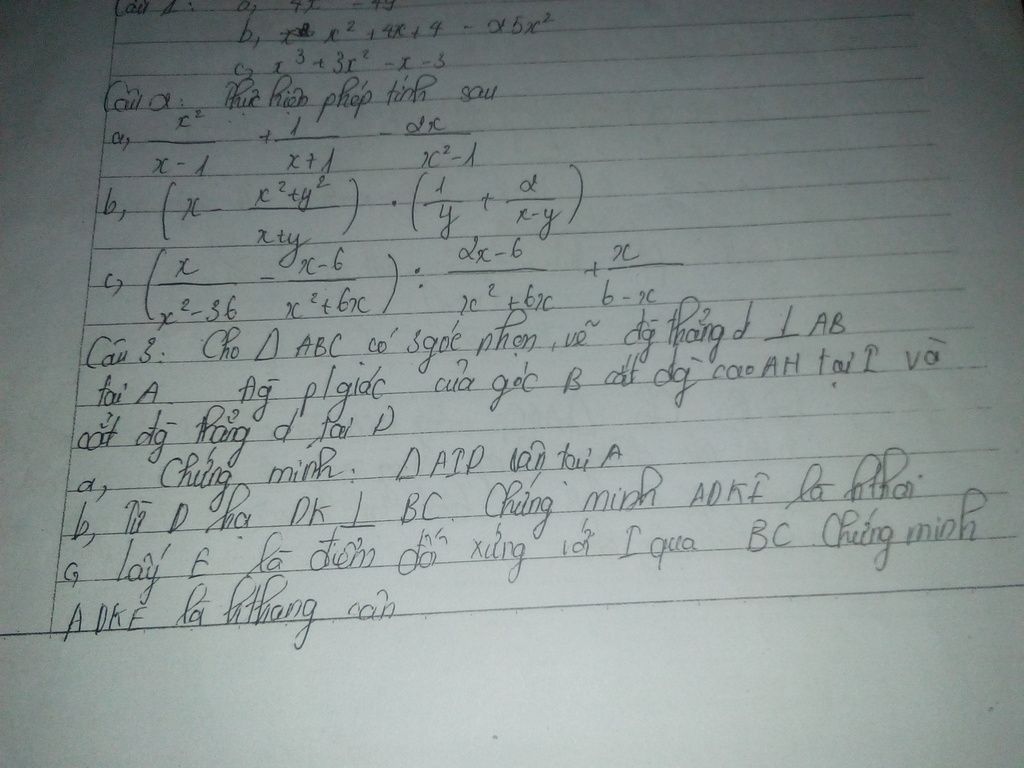 Câu 1: a, 4x - 4y
b, x² + 4x + 4 - 25x²
c, x³ + 3x² - x - 3
Câu 2: Thực hiện phép tính sau
a, x²/(x - 1) + 1/(x + 1) - 2x/(x² - 1)
b, (x - (x² + y²)/(x + y)) . (1/y + 2/(x - y))
c, (x/(x² - 36) - (x - 6)/(x² + 6x)) : (2x - 6)/(x² + 6x) + x/(6 - x)
Câu 3: Cho Δ ABC có 3 góc nhọn, vẽ đg thẳng d ⊥ AB
tại A. Đg p/giác của góc B cắt đg cao AH tại I và
cắt đg thẳng d tại D
a, Chứng minh: Δ AID cân tại A
b, Từ D hạ DK ⊥ BC. Chứng minh ADKI là hthoi
c, lấy E là điểm đối xứng với I qua BC. Chứng minh
ADKE là hthang cân